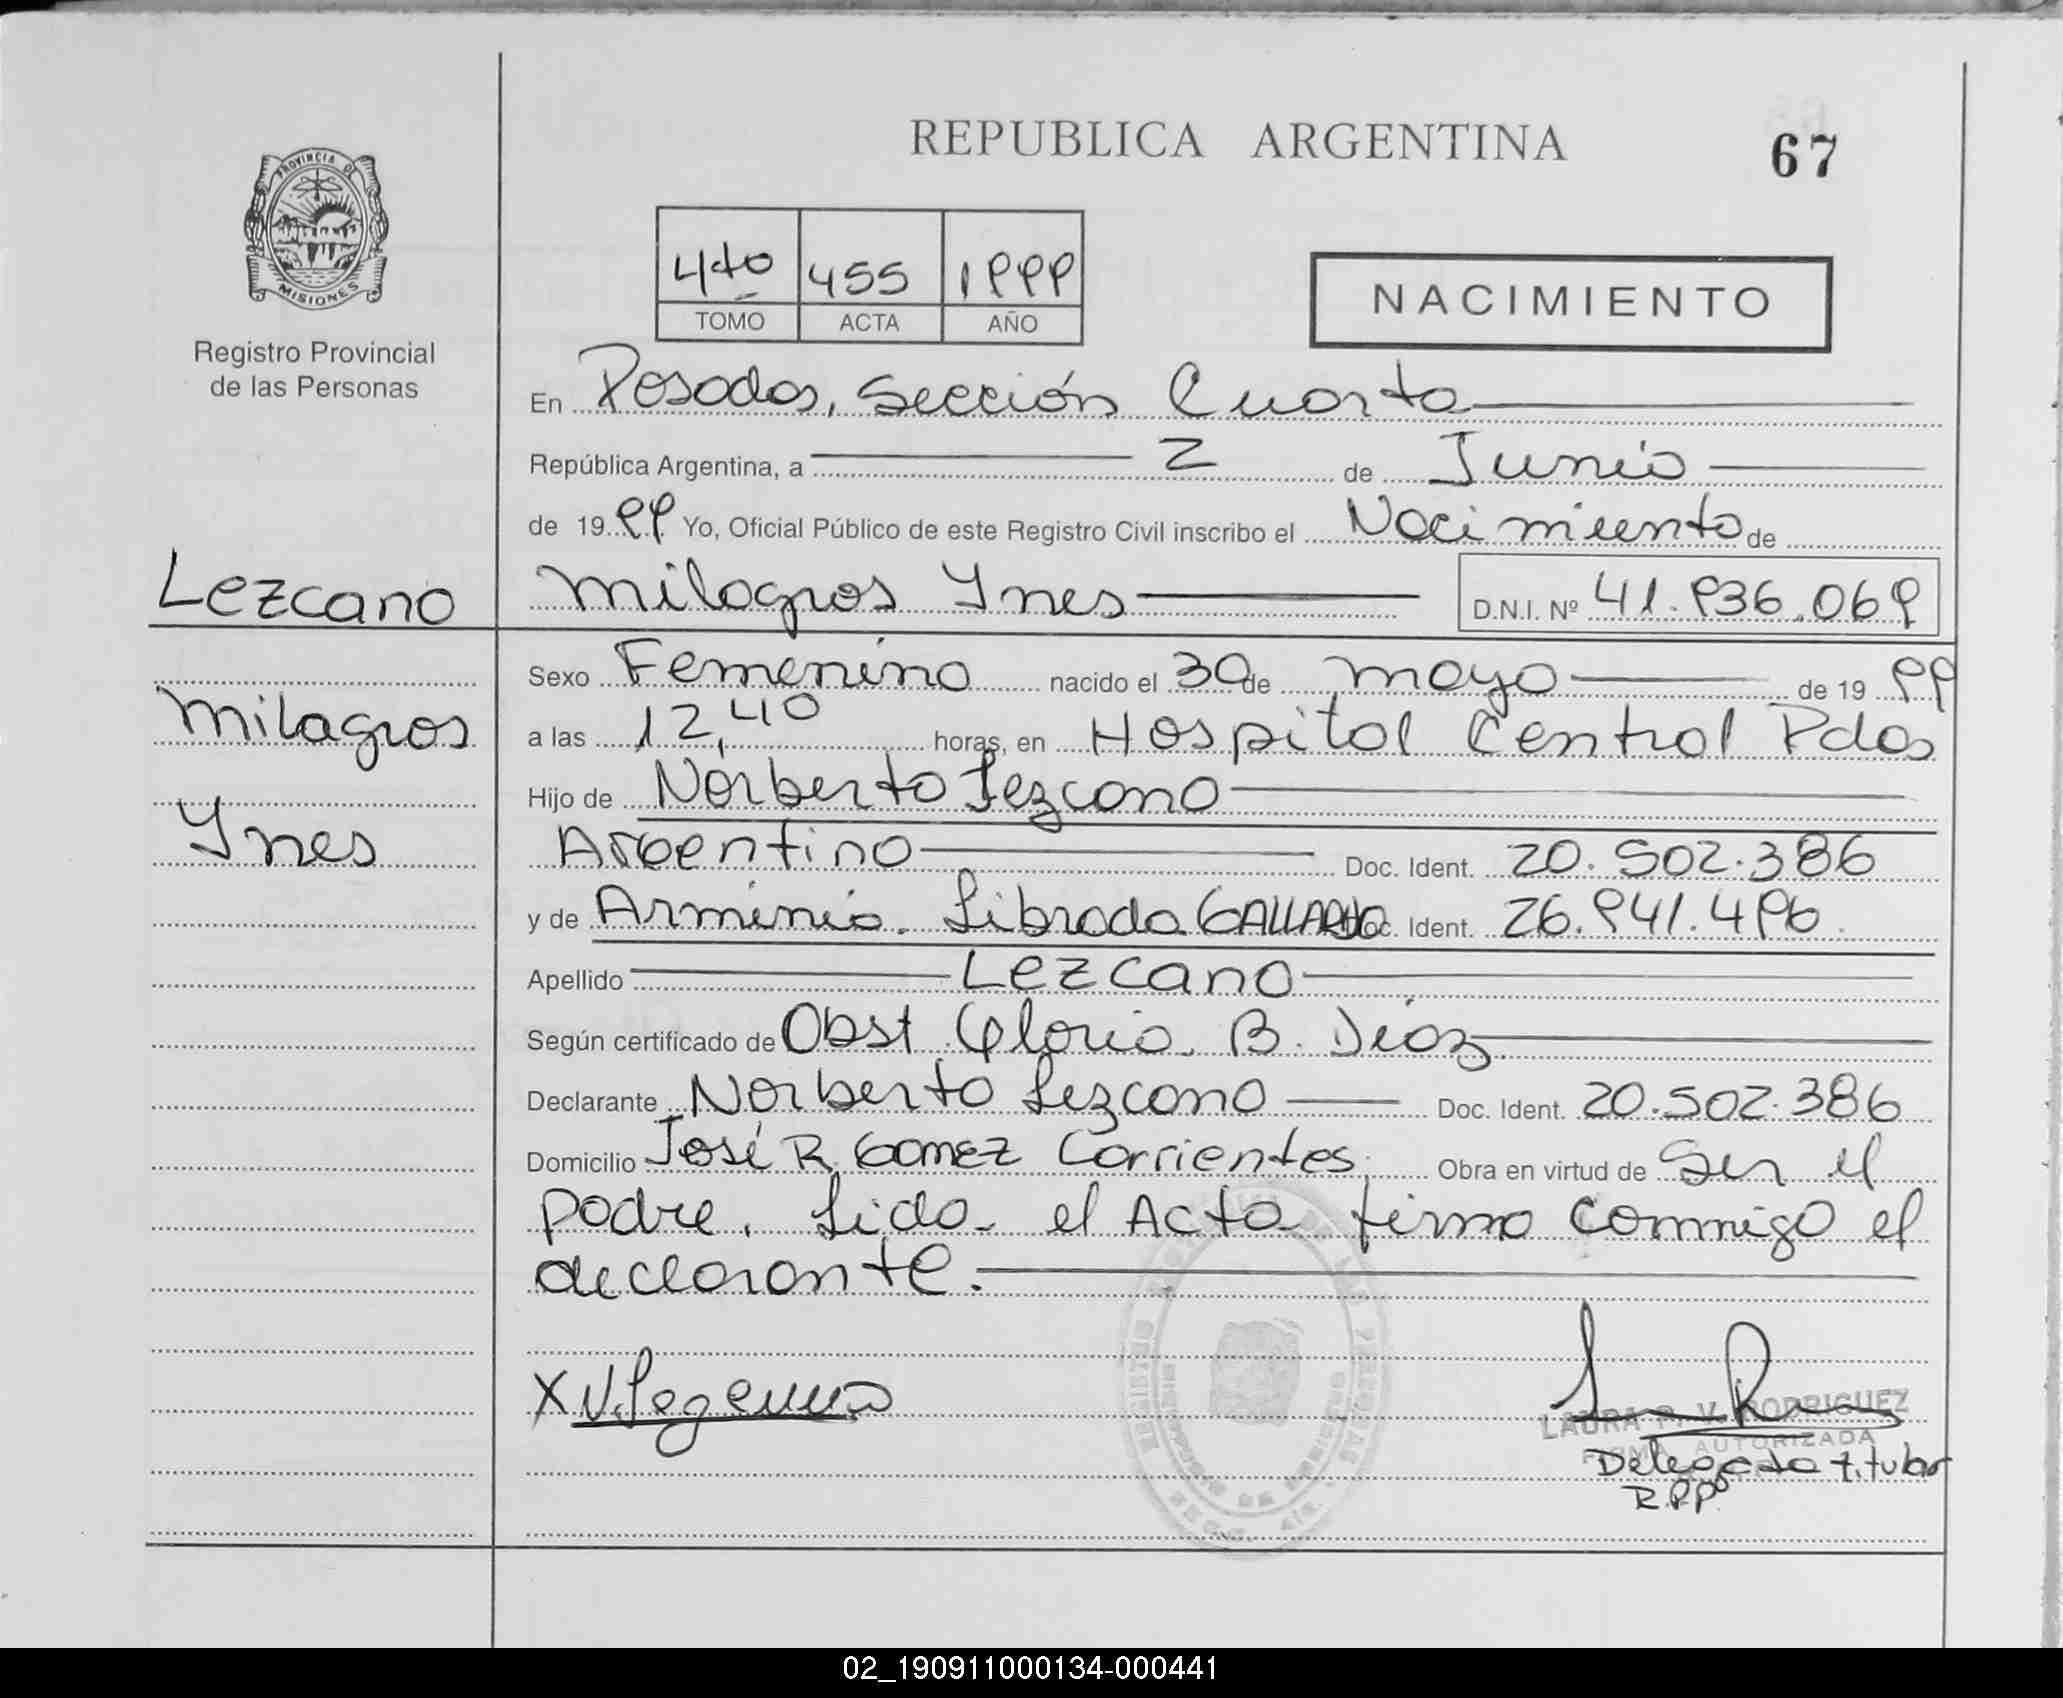 REPUBLICA ARGENTINA
67
PROVINCIA DE
MISIONES
Registro Provincial
de las Personas
4to 455 1999
TOMO ACTA AÑO
NACIMIENTO
En Posadas, Sección Cuarta
República Argentina, a 2 de Junio
de 1999 Yo, Oficial Público de este Registro Civil inscribo el Nacimiento de
Lezcano
Milagros Ynes D.N.I. Nº 41.936.069
Sexo Femenino nacido el 30 de mayo de 1999
Milagros
a las 12,40 horas, en Hospital Central Pdas
Hijo de Norberto Lezcano
Ynes
Argentino Doc. Ident. 20.502.386
y de Arminia Librada GALLARDO Doc. Ident. 26.941.496
Apellido Lezcano
Según certificado de Obst Gloria B. Diaz
Declarante Norberto Lezcano Doc. Ident. 20.502.386
Domicilio José R. Gomez Corrientes Obra en virtud de Ser el
padre. Lida el Acta firma conmigo el
declarante.
X
LAURA P. V. RODRIGUEZ
FIRMA AUTORIZADA
Delegada titular
R.P.P.
02_190911000134-000441